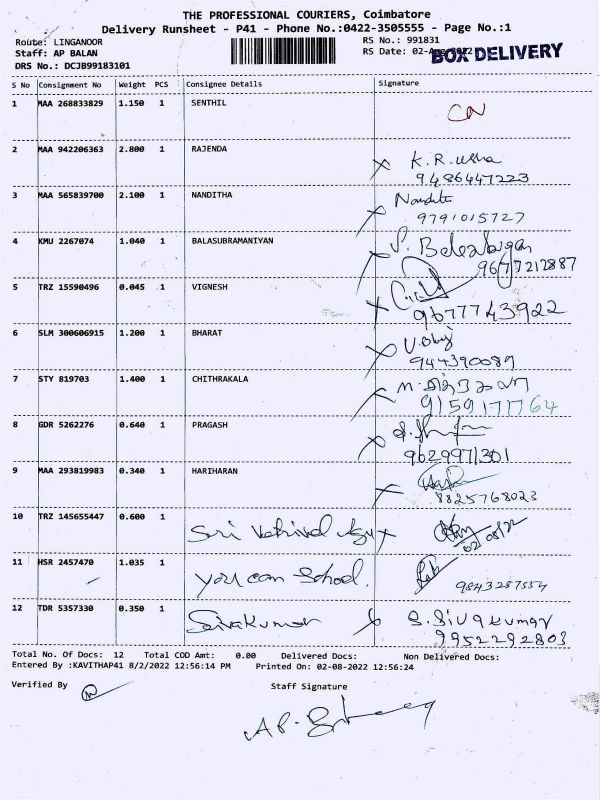 THE PROFESSIONAL COURIERS, Coimbatore
Delivery Runsheet - P41 - Phone No.:0422-3505555 - Page No.:1
Route: LINGANOOR RS No.: 991831
Staff: AP BALAN RS Date: 02-Aug-2022 BOX DELIVERY
DRS No.: DCJB99183101
S No Consignment No Weight PCS Consignee Details Signature
1 MAA 268833829 1.150 1 SENTHIL CN
2 MAA 942206363 2.800 1 RAJENDA K.R.usha
9486447223
3 MAA 565839700 2.100 1 NANDITHA Nandita
9791015727
4 KMU 2267074 1.040 1 BALASUBRAMANIYAN
9677212887
5 TRZ 15590496 0.045 1 VIGNESH
9677743922
6 SLM 300606915 1.200 1 BHARAT
944390089
7 STY 819703 1.400 1 CHITHRAKALA
9159177764
8 GDR 5262276 0.640 1 PRAGASH
9629971301
9 MAA 293819983 0.340 1 HARIHARAN
8825768023
10 TRZ 145655447 0.600 1 Sri
02/08/22
11 HSR 2457470 1.035 1 you can School.
9843287554
12 TDR 5357330 0.350 1 Sivakumar S. Sivakumar
9952292803
Total No. Of Docs: 12 Total COD Amt: 0.00 Delivered Docs: Non Delivered Docs:
Entered By :KAVITHAP41 8/2/2022 12:56:14 PM Printed On: 02-08-2022 12:56:24
Verified By Staff Signature